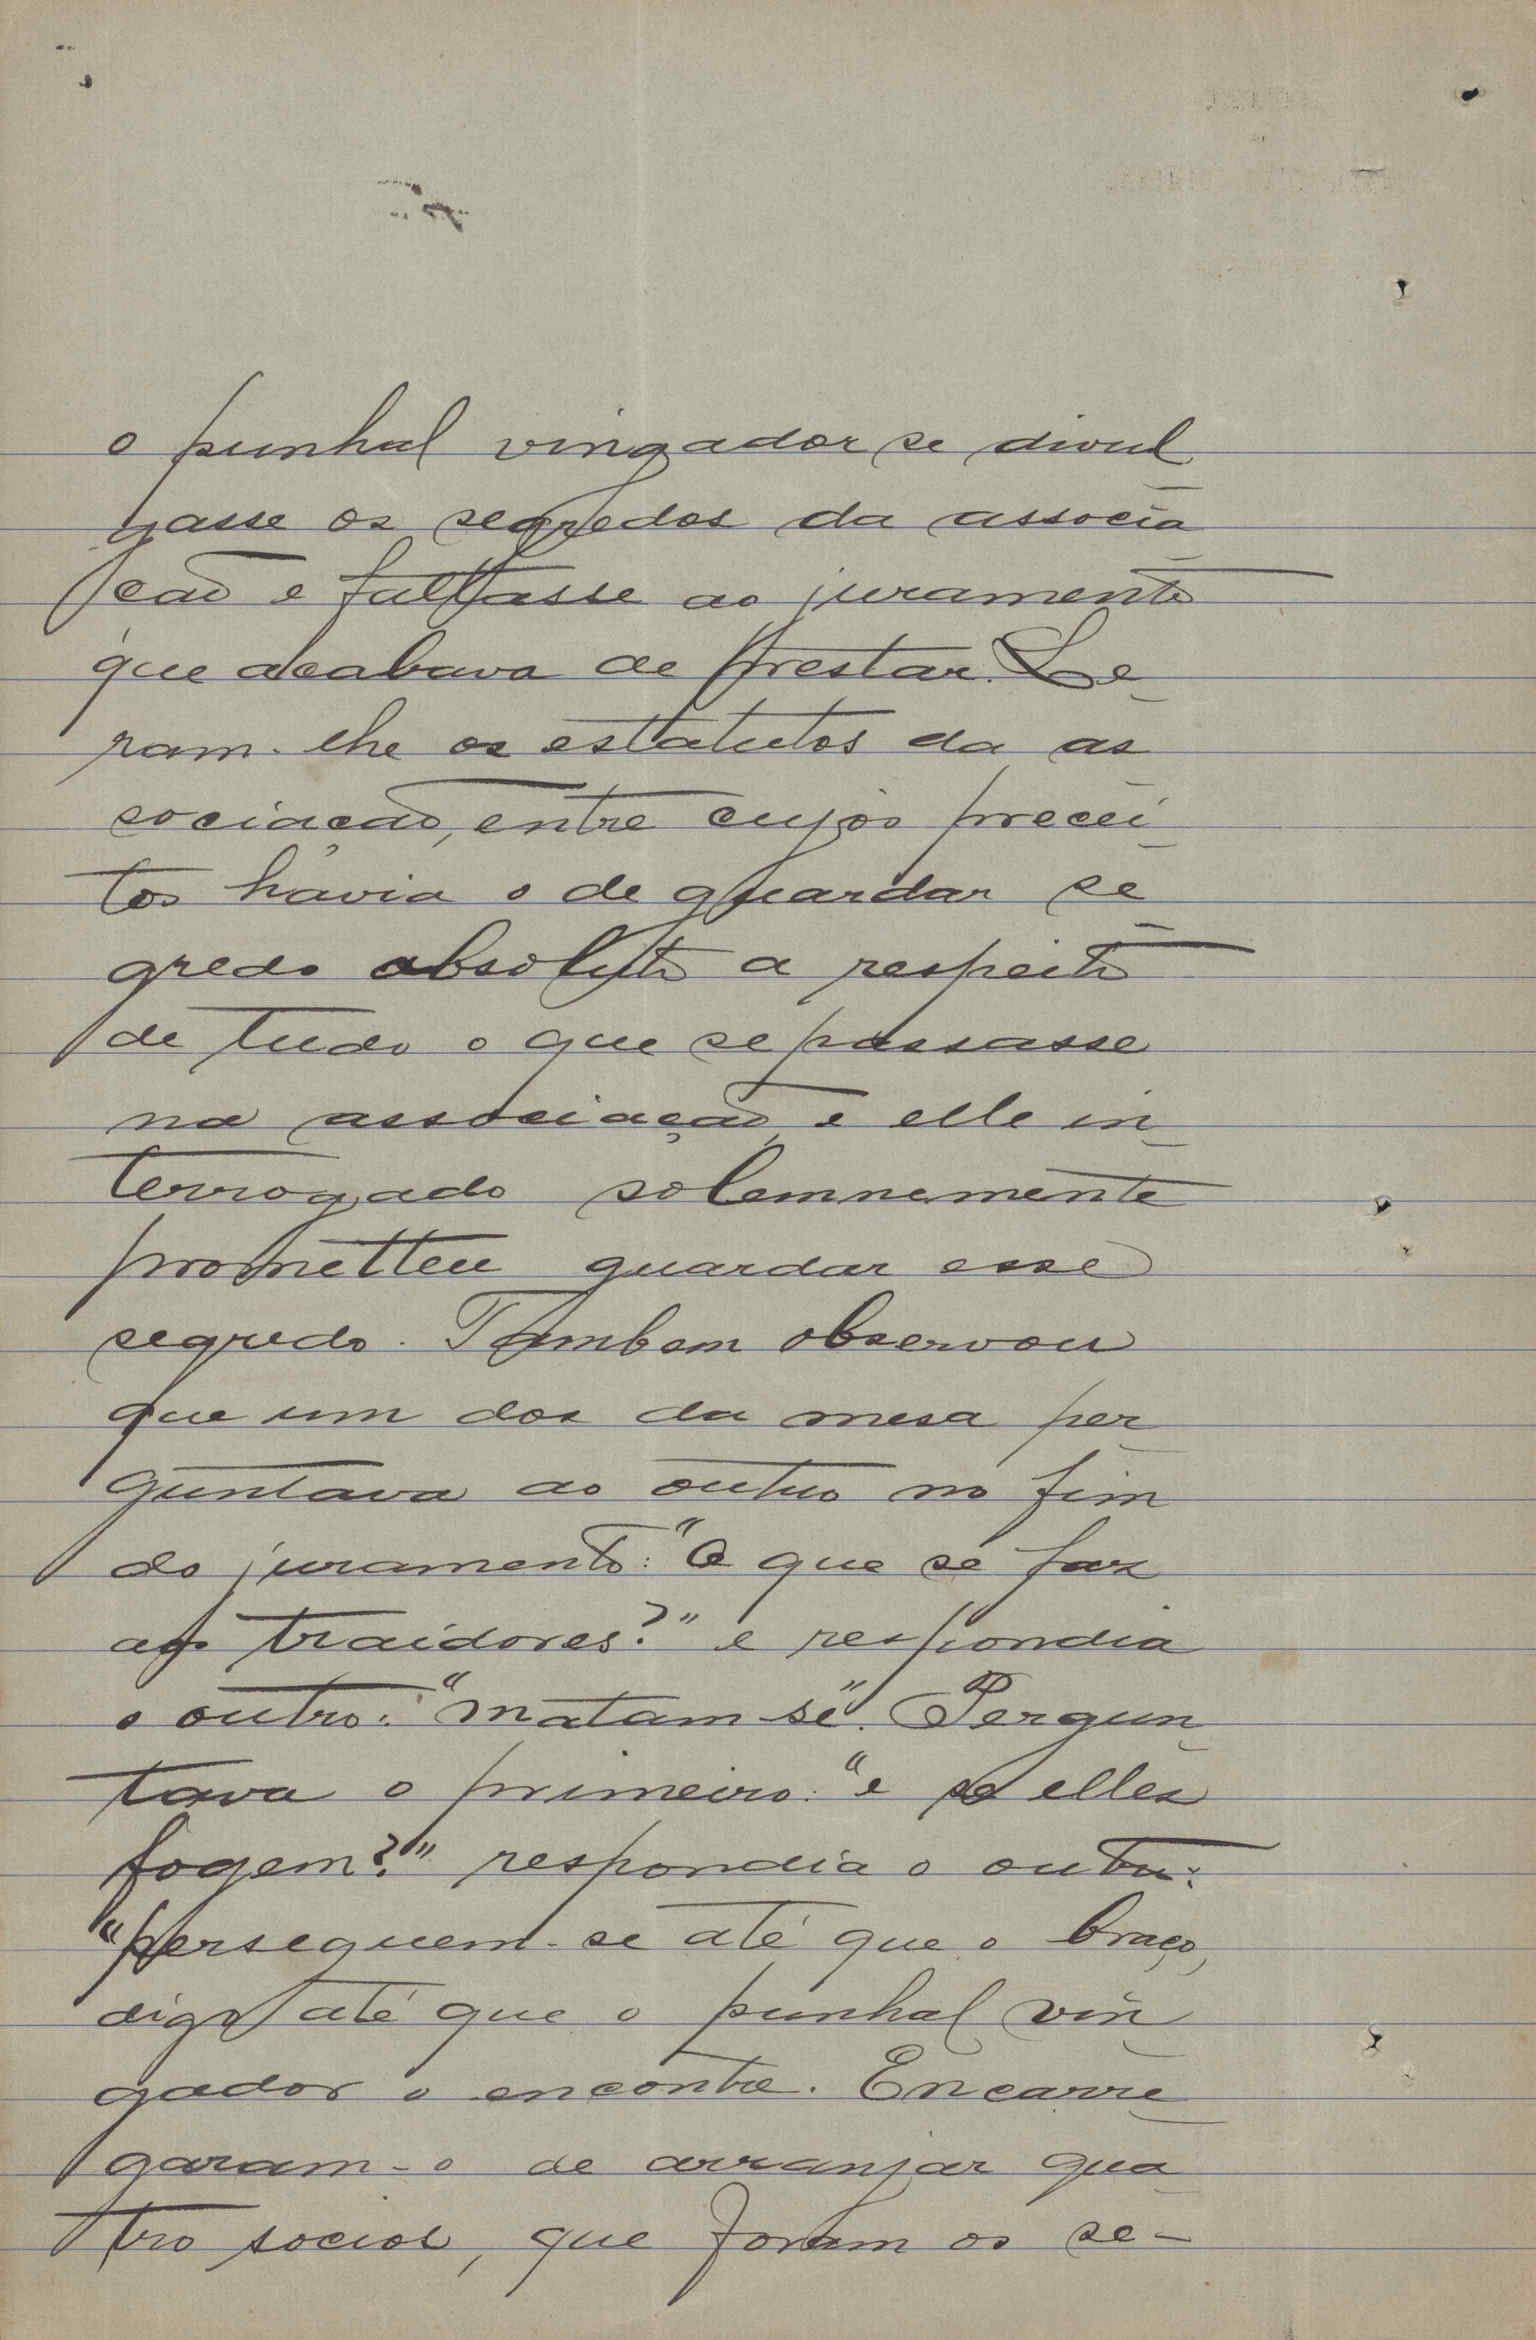 o punhal vingador se divul
gasse os segredos da associa
ção e faltasse ao juramento
que acabava de prestar. Le-
ram-lhe os estatutos da as
sociação, entre cujos precei
tos havia o de guardar se
gredo absoluto a respeito
de tudo o que se passasse
na associação, e elle in-
terrogado solemnemente
prometteu guardar esse
segredo. Tambem observou
que um dos da mesa per
guntava ao outro no fim
do juramento: "O que se faz
aos traidores?" e respondia
o outro: "matam-se". Pergun
tava o primeiro: "e se elles
fogem?" respondia o outro:
"perseguem-se até que o braço,
digo até que o punhal vin
gador o encontre. Encarre
garam-o de arranjar qua
tro socios, que foram os se-